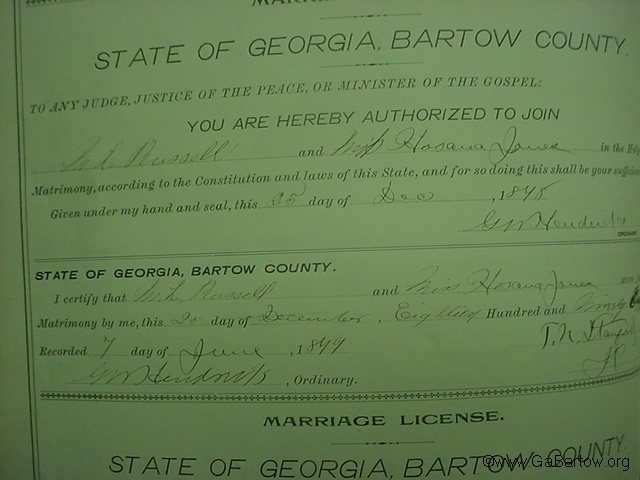 STATE OF GEORGIA, BARTOW COUNTY.
TO ANY JUDGE, JUSTICE OF THE PEACE, OR MINISTER OF THE GOSPEL:
YOU ARE HEREBY AUTHORIZED TO JOIN
Russell and Miss Hosana Jones in the Holy
Matrimony, according to the Constitution and laws of this State, and for so doing this shall be your sufficien
Given under my hand and seal, this 25 day of Dec , 1898
GW Hendricks
ORDINAR
STATE OF GEORGIA, BARTOW COUNTY.
I certify that Russell and Miss Hosana Jones
Matrimony by me, this day of December, Eighteen Hundred and Ninety
Recorded 7 day of June , 1899
T. N.
JP
GW Hendricks , Ordinary.
MARRIAGE LICENSE.
STATE OF GEORGIA, BARTOW COUNTY.
©www.GaBartow.org